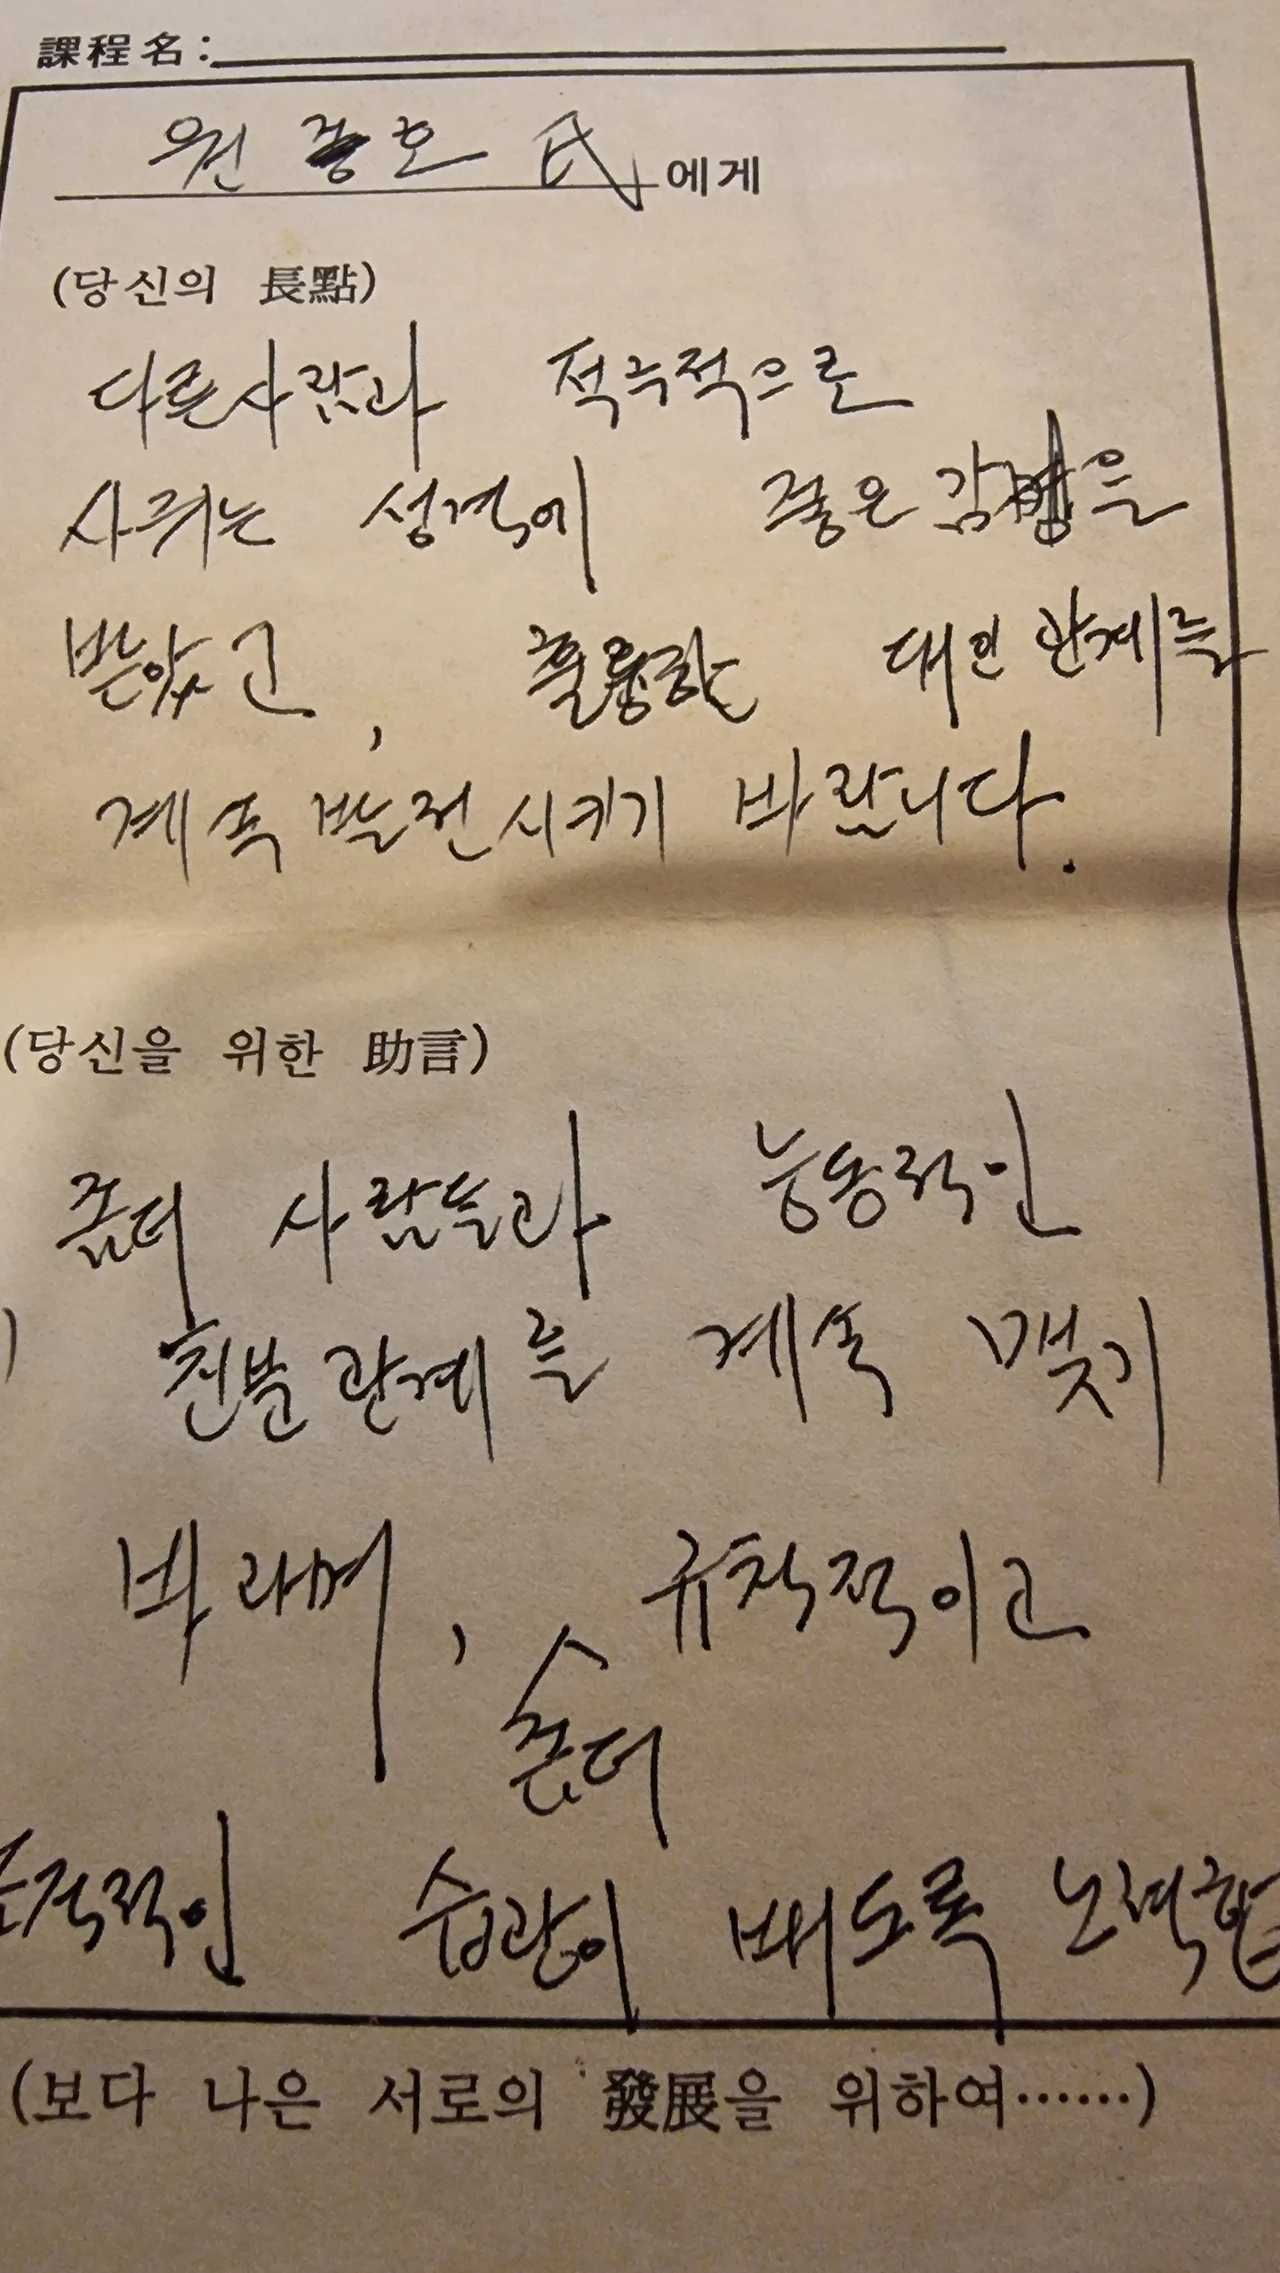 課程名:
원종호 氏 에게
(당신의 長點)
다른사람과 적극적으로
사귀는 성격에 좋은 감명을
받았고, 훌륭한 대인관계를
계속 발전시키기 바랍니다.
(당신을 위한 助言)
좀더 사람들과 능동적인
친분관계를 계속 맺기
바라며, 규칙적이고
좀더
습관이 배도록 노력합
(보다 나은 서로의 發展을 위하여……)